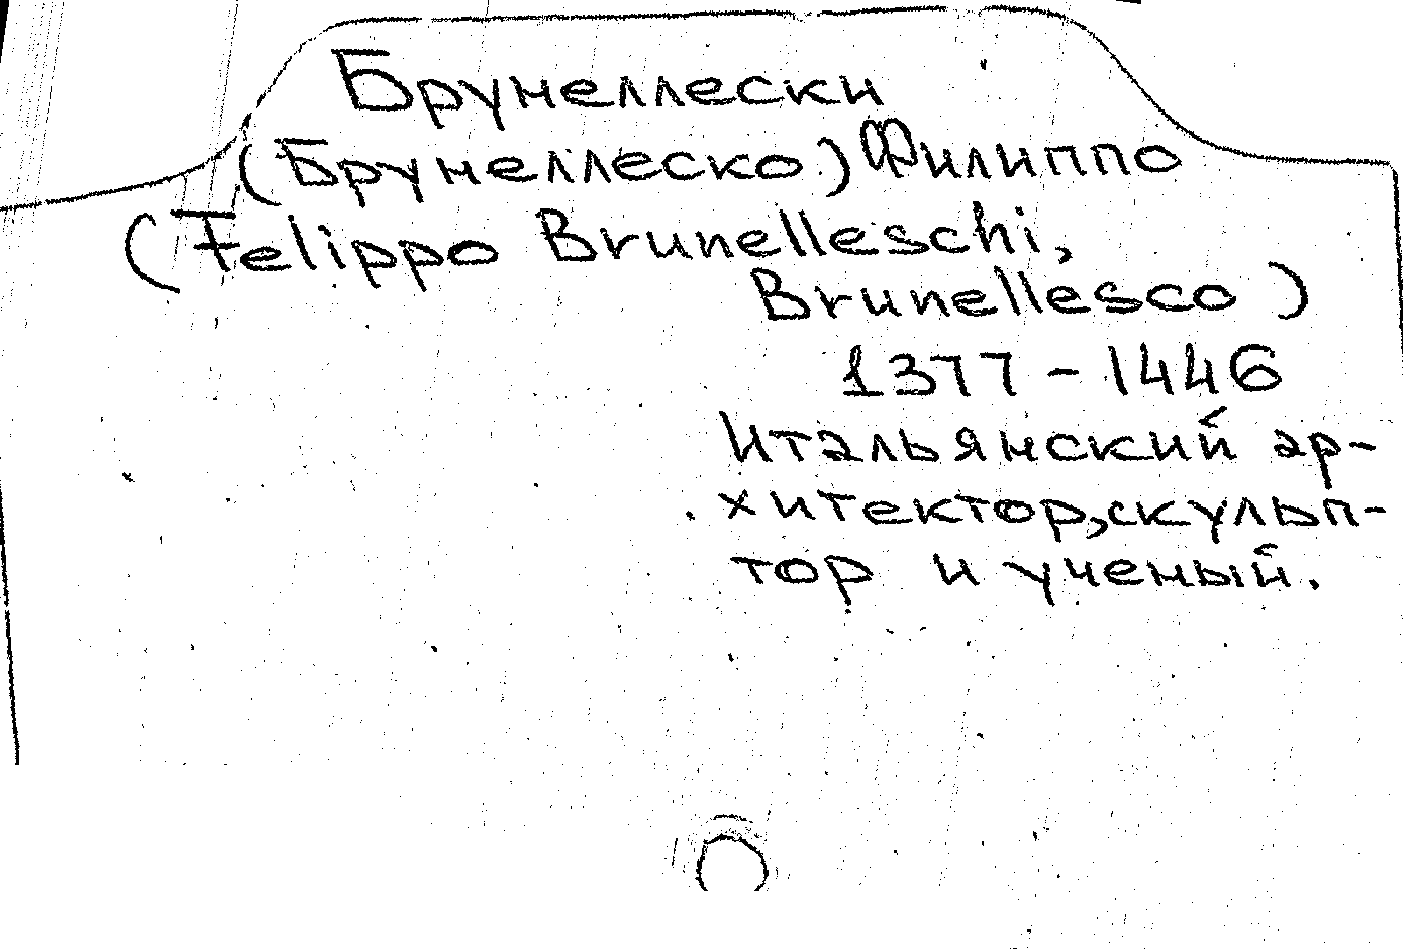 Брунеллески
(Брунеллеско) Филиппо
(Felippo Brunelleschi,
Brunellesco)
1377-1446
Итальянский ар-
хитектор, скульп-
тор и ученый.